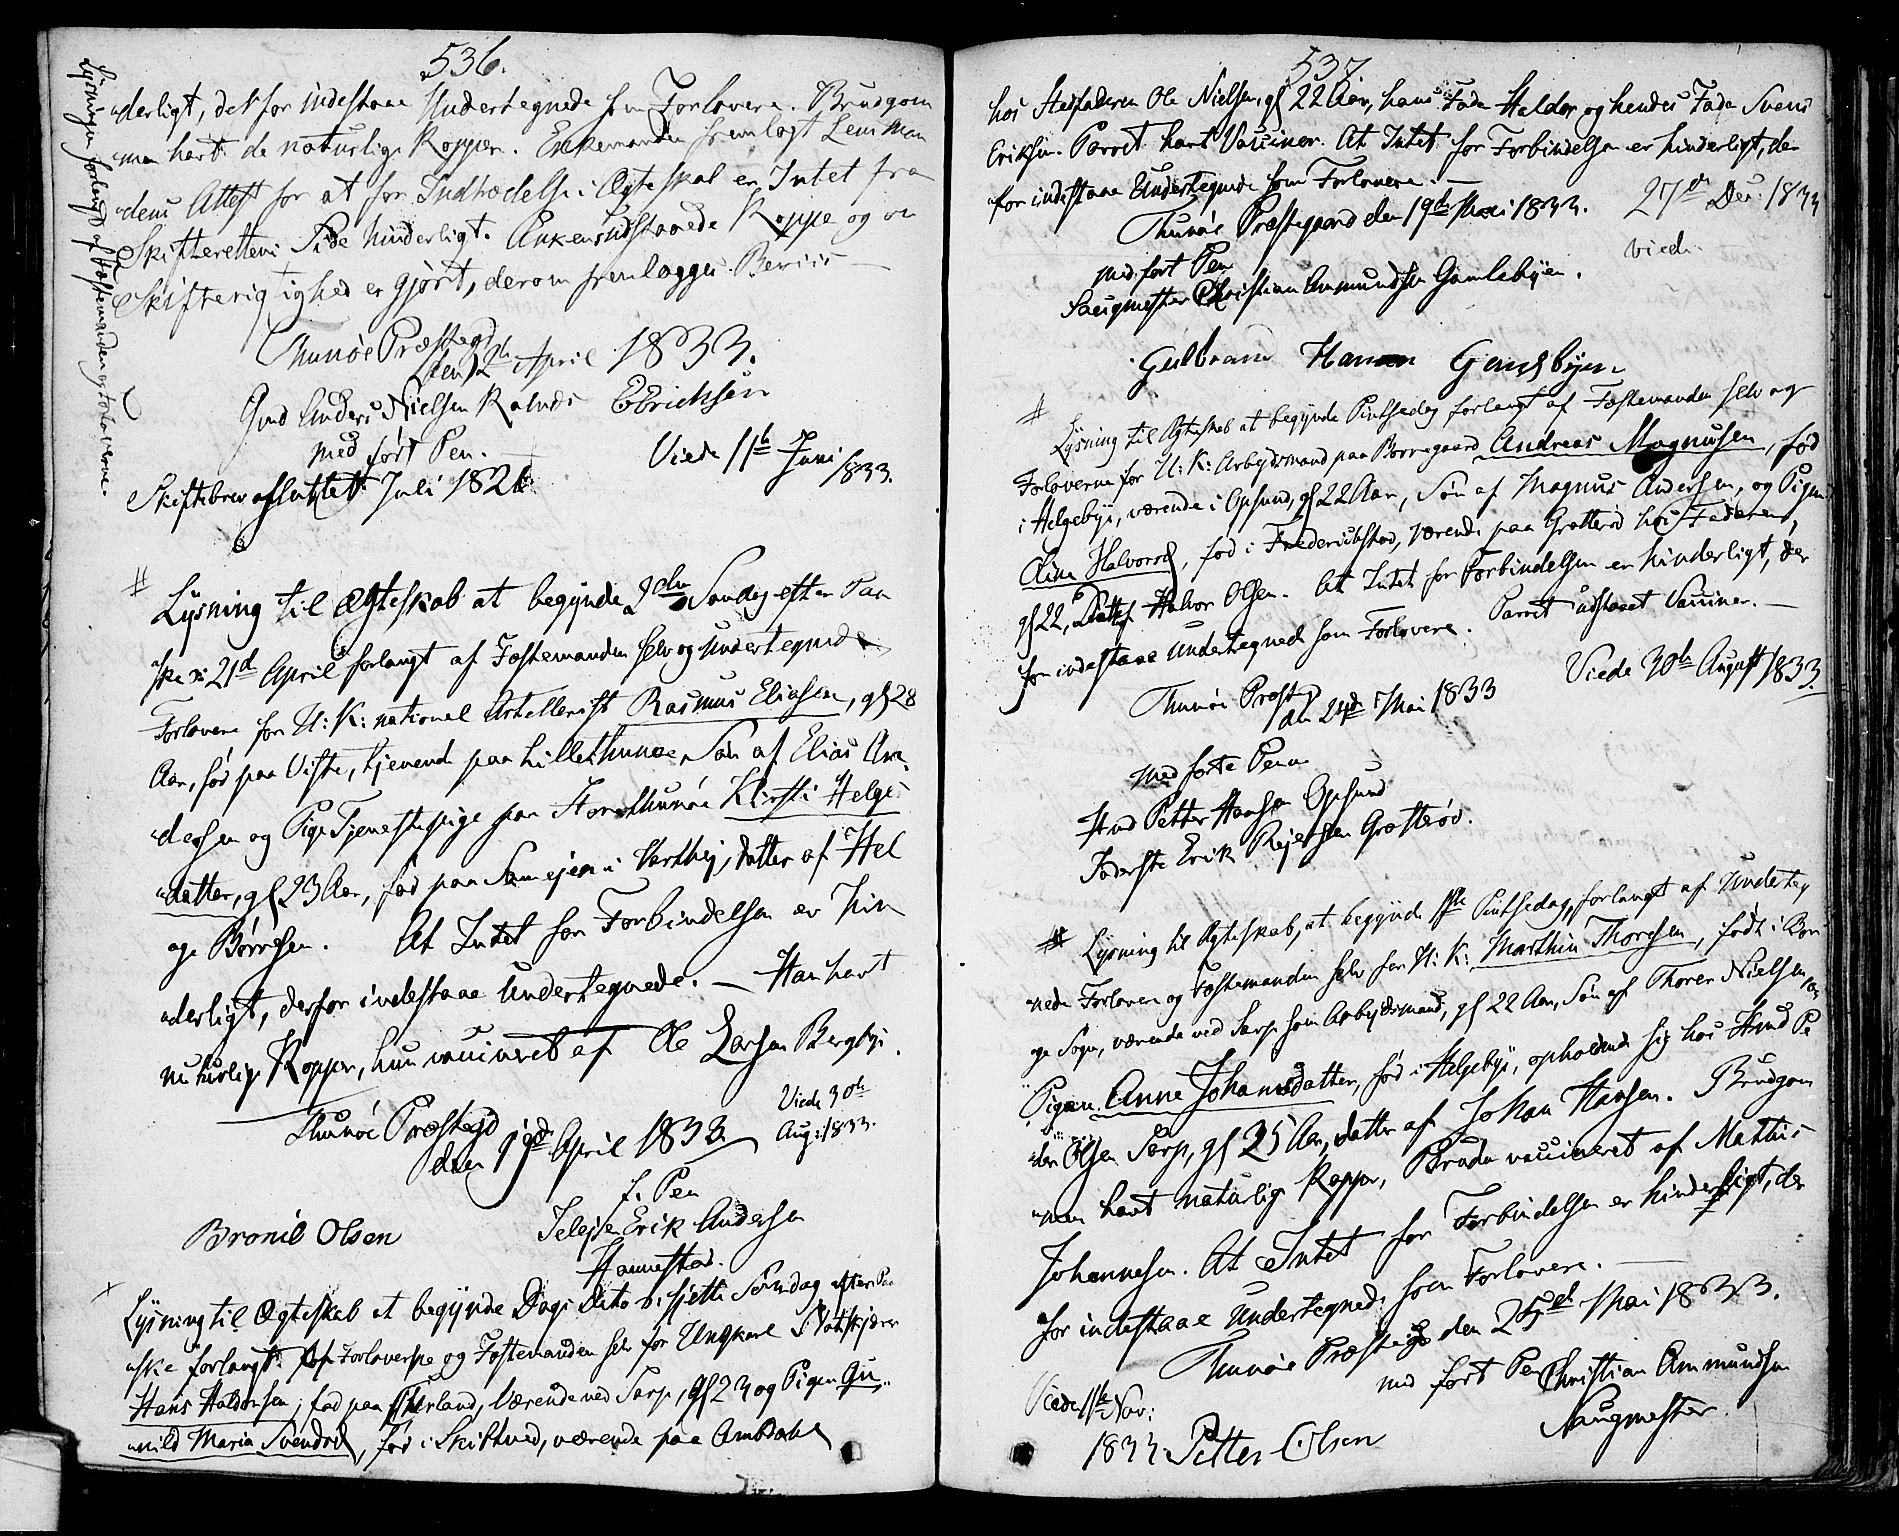 536.
Lysningen forlangt af Fæstemanden og Forloverne.
derligt, det for indestaae Undertegnede som Forlovere. Brudgom
men havt de naturlige Kopper. Enkemanden fremlagt Lensman
dens Attest for at for Indtrædelse i Ægteskab er Intet fra
Skifterettens Side hinderligt. Enken udstaaede Kopper og at
Skifterigtighed er gjort, derom fremlægges Beviis
Thunøe Præstegd
den 12te April 1833.
Gmd Anders Nielsen Kalnæs EErichsen
med ført Pen.
Viede 11te Juni 1833.
Skiftebrev afsluttet Juli 182
# Lysning til Ægteskab at begynde 2den Søndag efter Paa
ske d: 21d April forlangt af Fæstemanden selv og undertegnede
Forlovere for U: K: national Artellerist Rasmus Eliasen, gl 28
Aar, fød paa Viste, tjenende paa Lillethunøe, Søn af Elias An
dersen og Pige Tjenestepige paa Storethunøe Kirsti Helges
datter, gl 23 Aar, fød paa i Varteig, Datter af Hel
ge Børresen. At Intet for Forbindelsen er hin
derligt, derfor indestaae Undertegnede. — Han havt
naturlige Kopper, hun vaccineret af Ole Larsen Bergbye.
Thunøe Præstegd
den 19de April 1833.
Viede 30te
Aug: 1833.
f. Pen
Bronil Olsen
Erik Andersen
Hannestad.
+ Lysning til Ægteskab at begynde Dags Dato d: sjette Søndag efter Paa
ske forlangt af Forloverne og Fæstemanden selv for Ungkarl
Hans Haldorsen, fød paa, værende ved Sarp, gl 23 og Pigen Gu
nild Maria Svendsd, fød i Skibtved, værende paa
537.
hos Stedfaderen Ole Nielsen, gl 22 Aar, hans Fader Haldor og hendes Fader Svend
Eriksen. Parret havt Vacciner. At Intet for Forbindelsen er hinderligt, der
for indestaae Undertegnede som Forlovere. —
Thunøe Præstegaard den 19de Mai 1833.
27de Dec: 1833
viede.
med ført Pen
Saugmester Christian Ammundsen Gamlebyen.
Gulbrand Hansen
# Lysning til Ægteskab at begynde Pintsedag forlangt af Fæstemanden selv og
Forloverne for U: K: Arbeydsmand paa Borregaard Andreas Magnusen, fød
i Helgebye, værende i Opsund, gl 22 Aar, Søn af Magnus Andersen, og Pigen
Halvorsd, fød i Frederichstad, værende paa Grotterød hos Faderen,
gl 22, Datter af Halvor Olsen. At Intet for Forbindelsen er hinderligt, der
for indestaae Undertegnede som Forlovere. Parret udstaaet Vacciner. —
Thunøe Præstegd
den 24de Mai 1833
Viede 30te August 1833.
med førte Penne
Hmd Petter Hansen Opsund
Erik Grotterød.
# Lysning til Ægteskab, at begynde 1ste Pintsedag, forlangt af Underteg
nede Forlovere og Fæstemanden selv for U: K: Marthin Thoresen, født i Bor
ge Sogn, værende ved Sarp som Arbeydsmand, gl 22 Aar, Søn af Thorer Nielsen, og
Pigen Anne Johansdatter, fød i Helgebye, opholdende sig hos Hmd Pe
der Olsen Sarp, gl 25 Aar, Datter af Johan Hansen. Brudgom
men havt naturlige Kopper, Bruden vaccineret af Mathis
Johannesen. At Intet for Forbindelsen er hinderligt, der
for indestaae Undertegnede som Forlovere. —
Thunøe Præstegd den 25de Mai 1833.
med ført Pen Christian Ammundsen
Saugmester.
Viede 1ste Nov:
1833. Petter Olsen